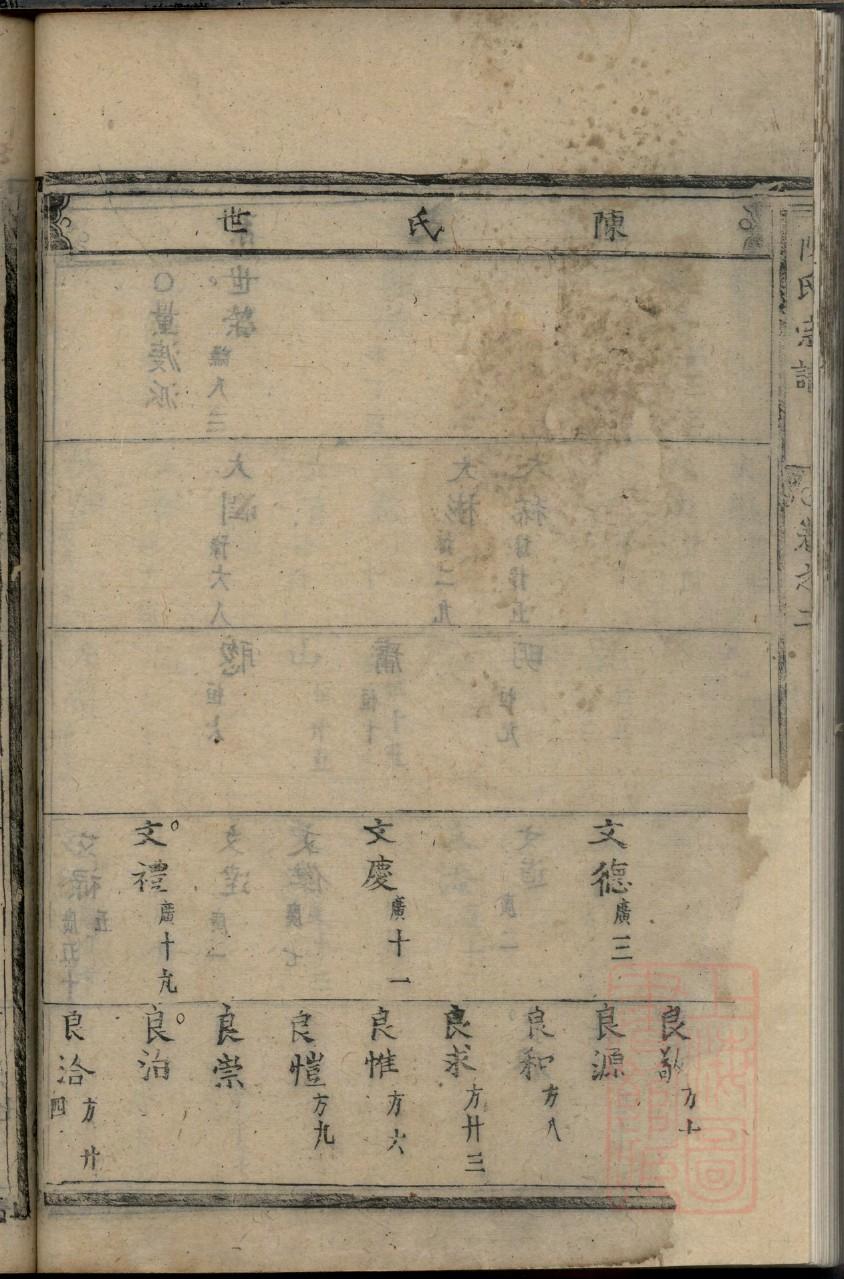 陳氏宗譜 卷之二
陳氏世
文德 廣三
文慶 廣十一
文禮 廣十九
良敬 方十
良源
良和 方八
良求 方廿三
良惟 方六
良愷 方九
良崇
良治
良洽 方廿四